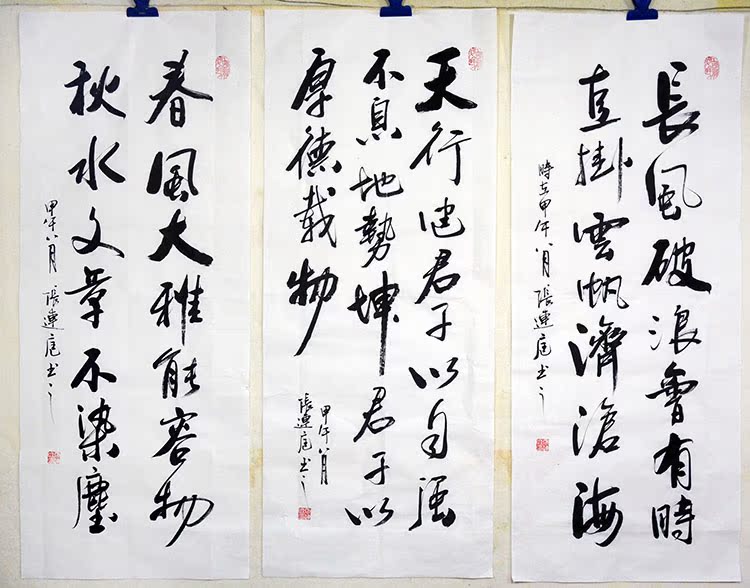 長風破浪會有時
直掛雲帆濟滄海
時在甲午八月張連庭书之
天行健君子以自强
不息地勢坤君子以
厚德載物
甲午八月
張連庭书之
春風大雅能容物
秋水文章不染塵
甲午八月張連庭书之